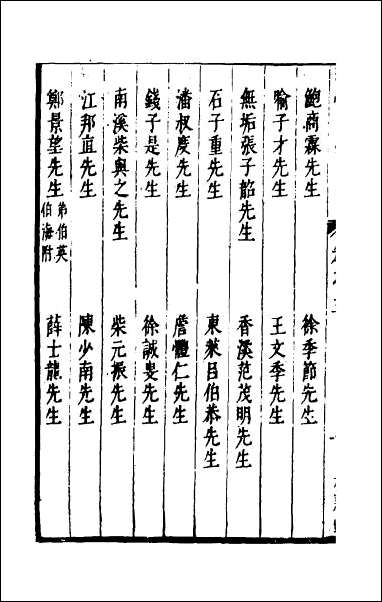 鮑商霖先生　徐季節先生
喻子才先生　王文季先生
無垢張子韶先生　香溪范茂明先生
石子重先生　東萊呂伯恭先生
潘叔度先生　詹體仁先生
錢子是先生　徐誠叟先生
南溪柴與之先生　柴元振先生
江邦直先生　陳少南先生
鄭景望先生弟伯英伯海附　薛士龍先生